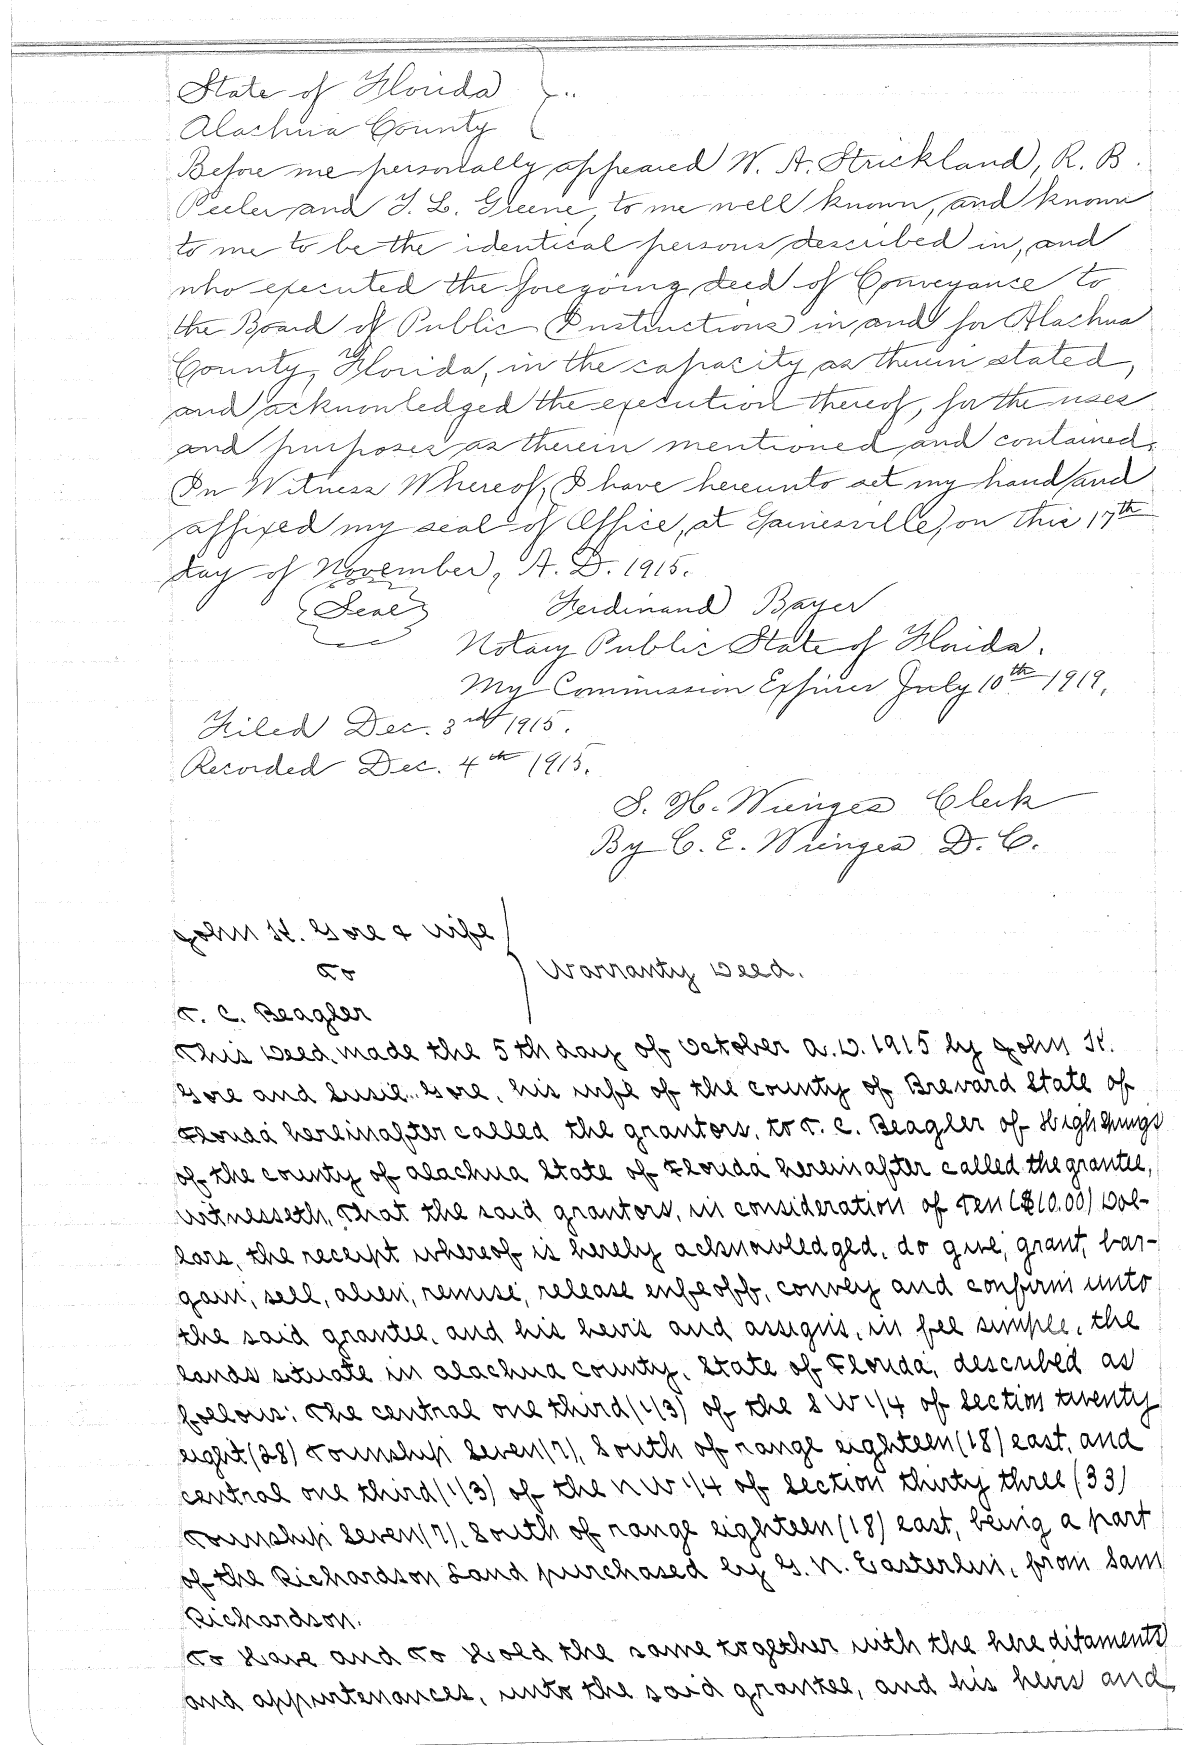 State of Florida } ..
Alachua County
Before me personally appeared W. A. Strickland, R. B.
Peeler and T. L. Greene, to me well known, and known
to me to be the identical persons described in, and
who executed the foregoing deed of Conveyance to
the Board of Public Instructions in and for Alachua
County, Florida, in the capacity as therein stated,
and acknowledged the execution thereof, for the uses
and purposes as therein mentioned and contained.
In Witness Whereof, I have hereunto set my hand and
affixed my seal of Office, at Gainesville, on this 17th
day of November, A. D. 1915.
Seal Ferdinand Bayer
Notary Public State of Florida.
My Commission Expires July 10th 1919.
Filed Dec. 3rd 1915.
Recorded Dec. 4th 1915.
S. H. Wienges Clerk
By C. E. Wienges D. C.
John H. Gore & wife
to } Warranty Deed.
T. C. Beagler
This Deed, made the 5th day of October A.D. 1915 by John H.
Gore and Susie Gore, his wife of the county of Brevard State of
Florida hereinafter called the grantors, to T. C. Beagler of High Springs
of the county of Alachua State of Florida hereinafter called the grantee,
witnesseth, That the said grantors, in consideration of Ten ($10.00) Dol-
lars, the receipt whereof is hereby acknowledged, do give, grant, bar-
gain, sell, alien, remise, release enfeoff, convey and confirm unto
the said grantee, and his heirs and assigns, in fee simple, the
lands situate in Alachua county, State of Florida, described as
follows: The central one third (1/3) of the SW 1/4 of Section twenty
eight (28) Township Seven (7), South of range eighteen (18) east, and
central one third (1/3) of the NW 1/4 of Section thirty three (33)
Township Seven (7), South of range eighteen (18) east, being a part
of the Richardson Land purchased by G. N. Easterlin, from Sam
Richardson.
To Have and To Hold the same together with the hereditaments
and appurtenances, unto the said grantee, and his heirs and